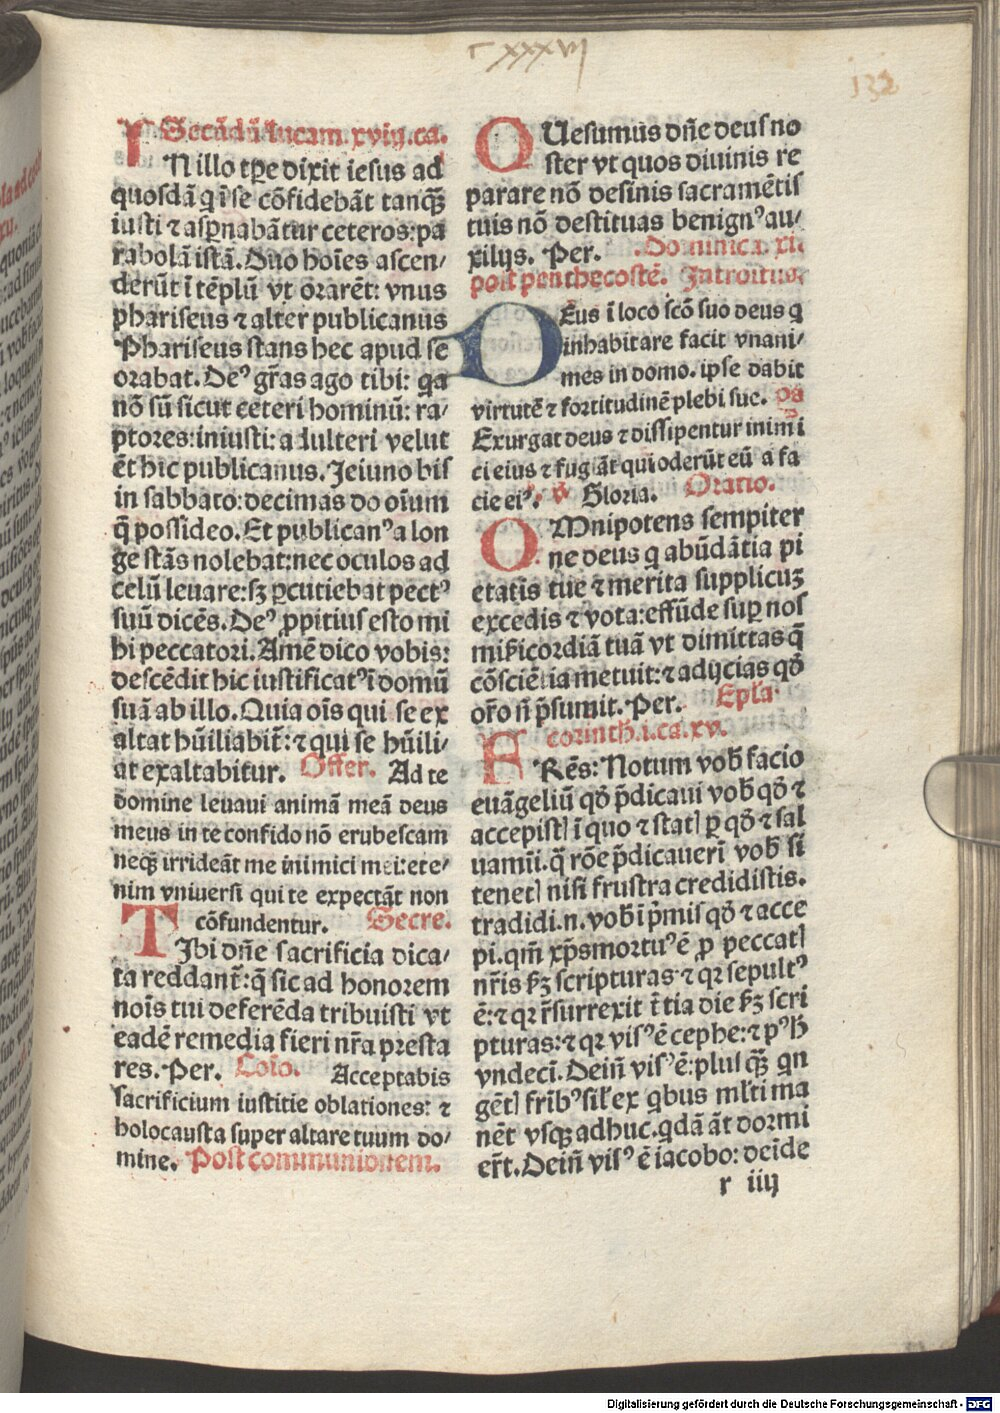 c xxxvij
132
Secūdū lucam. xviij. ca.
IN illo tꝑe dixit iesus ad
quosdā q̇ ī se cōfidebāt tanqȝ
iusti ⁊ asꝑnabātur ceteros: pa
rabolā istā. Duo hoīes ascen⸗
derūt ī tēplū vt orarēt: vnus
phariseus ⁊ alter publicanus
Phariseus stans hec apud se
orabat. Deꝰ gr̄as ago tibi: qa
nō sū sicut ceteri hominū: ra⸗
ptores: iniusti: adulteri velut
ēt hic publicanus. Jeiuno bis
in sabbato: decimas do oīum
q̄ possideo. Et publicanꝰ a lon
ge stās nolebat: nec oculos ad
celū leuare: sȝ ꝑcutiebat pectꝰ
suū dicēs. Deꝰ ꝓpitius esto mi
hi peccatori. Amē dico vobis:
descēdit hic iustificatꝰ ī domū
suā ab illo. Quia oīs qui se ex
altat hūiliabit̄: ⁊ qui se hūili⸗
at exaltabitur. Offer. Ad te
domine leuaui animā meā deus
meus in te confido nō erubescam
neqȝ irrideāt me inimici mei: ete⸗
nim vniuersi qui te expectāt non
cōfundentur. Secre.
TIbi dn̄e sacrificia dica⸗
ta reddant̄: q̄ sic ad honorem
nois̄ tui deferēda tribuisti vt
eadē remedia fieri nr̄a presta
res. Per. Cōio. Acceptabis
sacrificium iustitie oblationes: ⁊
holocausta super altare tuum do⸗
mine. Post communionem.
QUesumus dn̄e deus no
ster vt quos diuinis re
parare nō desinis sacramētis
tuis nō destituas benignꝰ au⸗
xilijs. Per. Dominica. xi.
post penthecostē. Introitus.
DEus ī loco sc̄o suo deus q
inhabitare facit vnani⸗
mes in domo. ipse dabit
virtutē ⁊ fortitudinē plebi sue. ps
Exurgat deus ⁊ dissipentur inimi
ci eius ⁊ fugiāt qui oderūt eū a fa
cie eiꝰ. ℣ Gloria. Oratio.
OMnipotens sempiter
ne deus q abūdātia pi
etatis tue ⁊ merita supplicuȝ
excedis ⁊ vota: effūde suꝑ nos
mīsericordiā tuā vt dimittas q̄
cōsciētia metuit: ⁊ adijcias qd̄
or̄o n̄ p̄sumit. Per. Epl̄a
corinth. i. ca. xv.
FRēs: Notum vob̄ facio
euāgeliū qd̄ p̄dicaui vob̄ qd̄ ⁊
accepistꝭ ī quo ⁊ statꝭ ꝑ qd̄ ⁊ sal
uamī. q̄ rōe p̄dicauerī vob̄ si
tenetꝭ nisi frustra credidistis.
tradidi. n. vob̄ ī p̄mis qd̄ ⁊ acce
pi. qm̄ xp̄s mortuꝰ ē ꝓ peccatꝭ
nr̄is ẜȝ scripturas ⁊ qr sepultꝰ
ē: ⁊ qr r̄surrexit t̄tia die ẜȝ scri
pturas: ⁊ qr visꝰ ē cephe: ⁊ pꝰ h̄
vndecī. Dein̄ visꝰ ē: plusqȝ qn
gētꝭ frībꝰ sil̄ ex qbus ml̄ti ma
nēt vsqȝ adhuc. qdā āt dormi
er̄t. Dein̄ visꝰ ē iacobo: deīde
r iiij
Digitalisierung gefördert durch die Deutsche Forschungsgemeinschaft - DFG